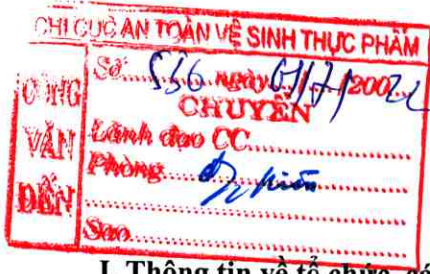 CHI CỤC AN TOÀN VỆ SINH THỰC PHẨM
CÔNG VĂN ĐẾN
Số 536 ngày 01/7/20022
CHUYỂN
Lãnh đạo CC
Phòng
Sao
I. Thông tin về tổ chức, cá